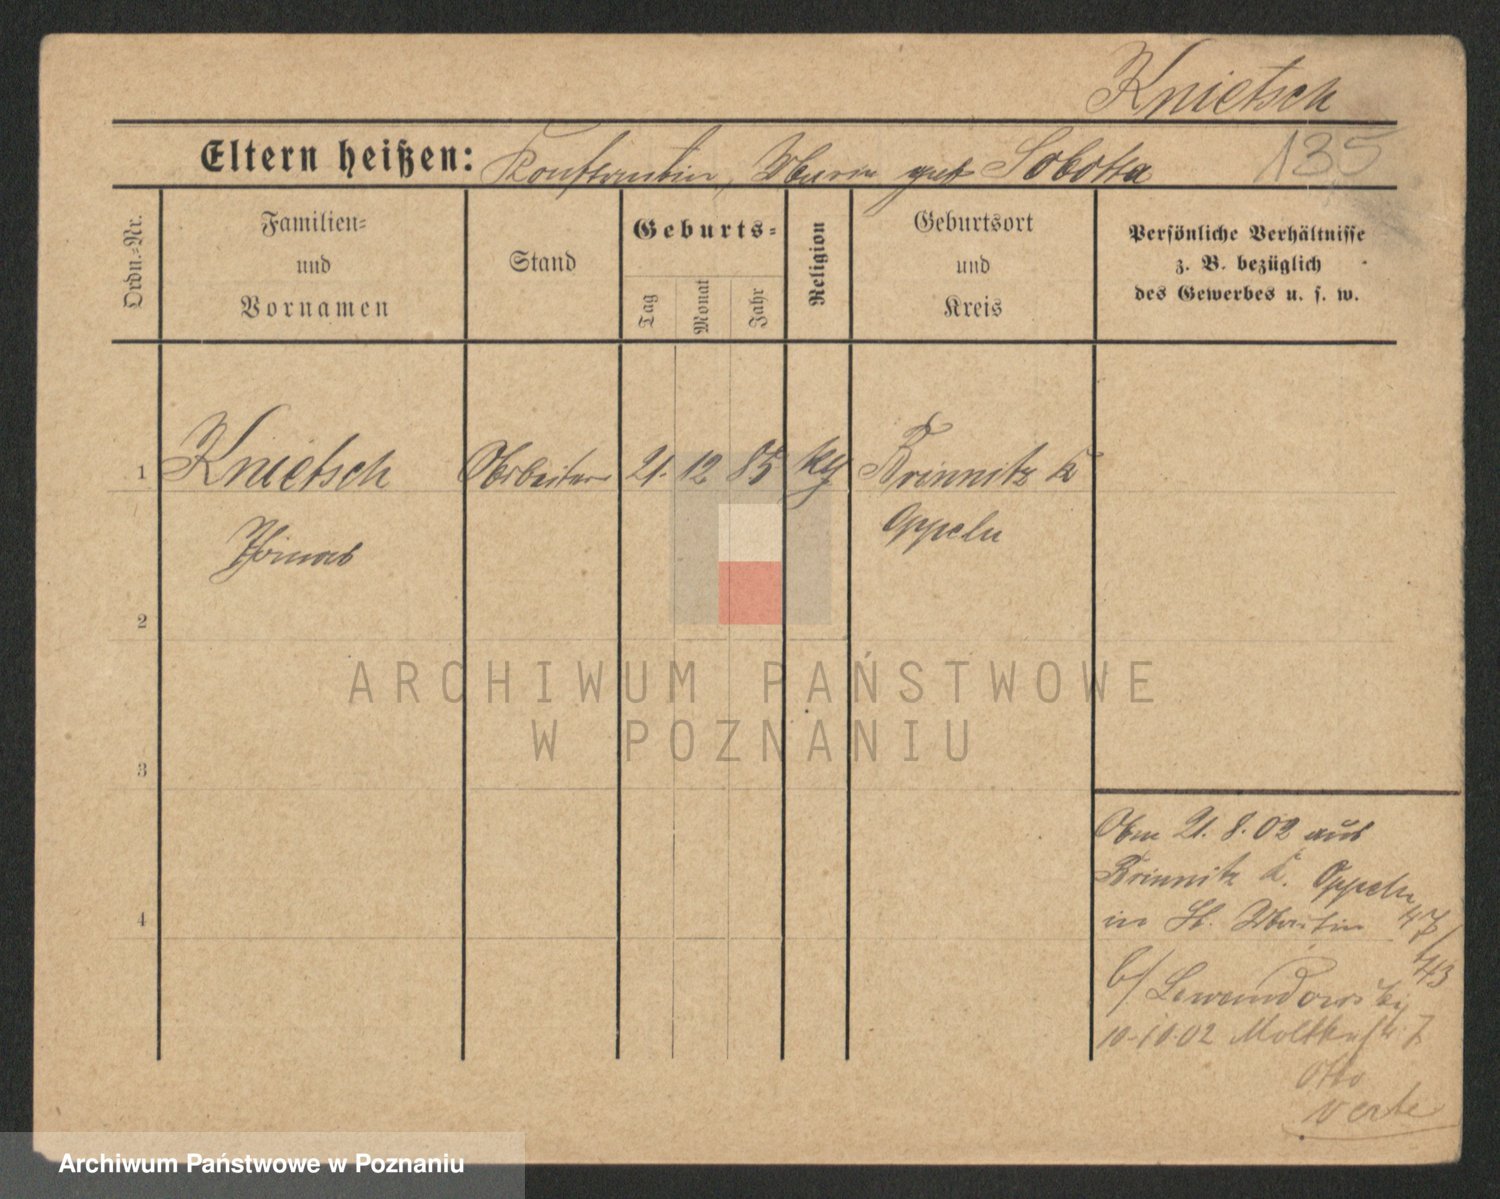 Knietsch
135
Eltern heißen: Konstantin, Maria geb Sobotta
Ordn.-Nr.
Familien-
und
Vornamen
Stand
Geburts-
Tag
Monat
Jahr
Religion
Geburtsort
und
Kreis
Persönliche Verhältnisse
z. B. bezüglich
des Gewerbes u. s. w.
1 Knietsch Arbeiter 21. 12 85 Brinnitz K
Thomas Oppeln
2
3
4
21. 8. 02 aus
Brinnitz K. Oppeln
in St. Martin 47/43
b/ Lewandowski
10.10.02 Moltkestr. 7
Otto
verte
ARCHIWUM PAŃSTWOWE
W POZNANIU
Archiwum Państwowe w Poznaniu